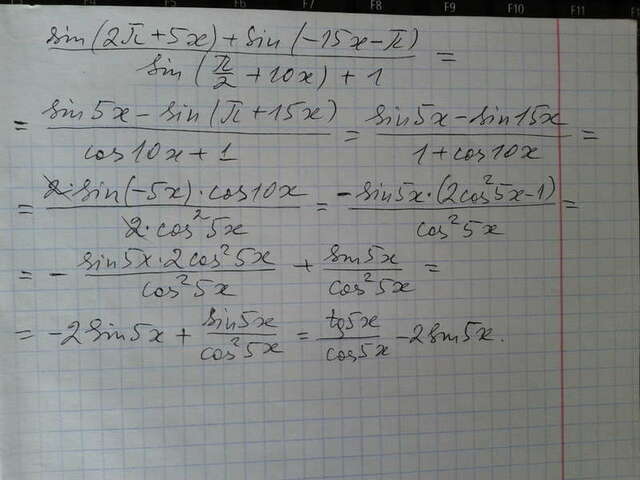 F6 F7 F8 F9 F10 F11
(sin(2π+5x)+sin(-15x-π))/(sin(π/2+10x)+1) =
= (sin5x-sin(π+15x))/(cos10x+1) = (sin5x-sin15x)/(1+cos10x) =
= (2·sin(-5x)·cos10x)/(2·cos²5x) = (-sin5x·(2cos²5x-1))/(cos²5x) =
= -(sin5x·2cos²5x)/(cos²5x) + (sin5x)/(cos²5x) =
= -2sin5x + (sin5x)/(cos²5x) = (tg5x)/(cos5x) - 2sin5x.